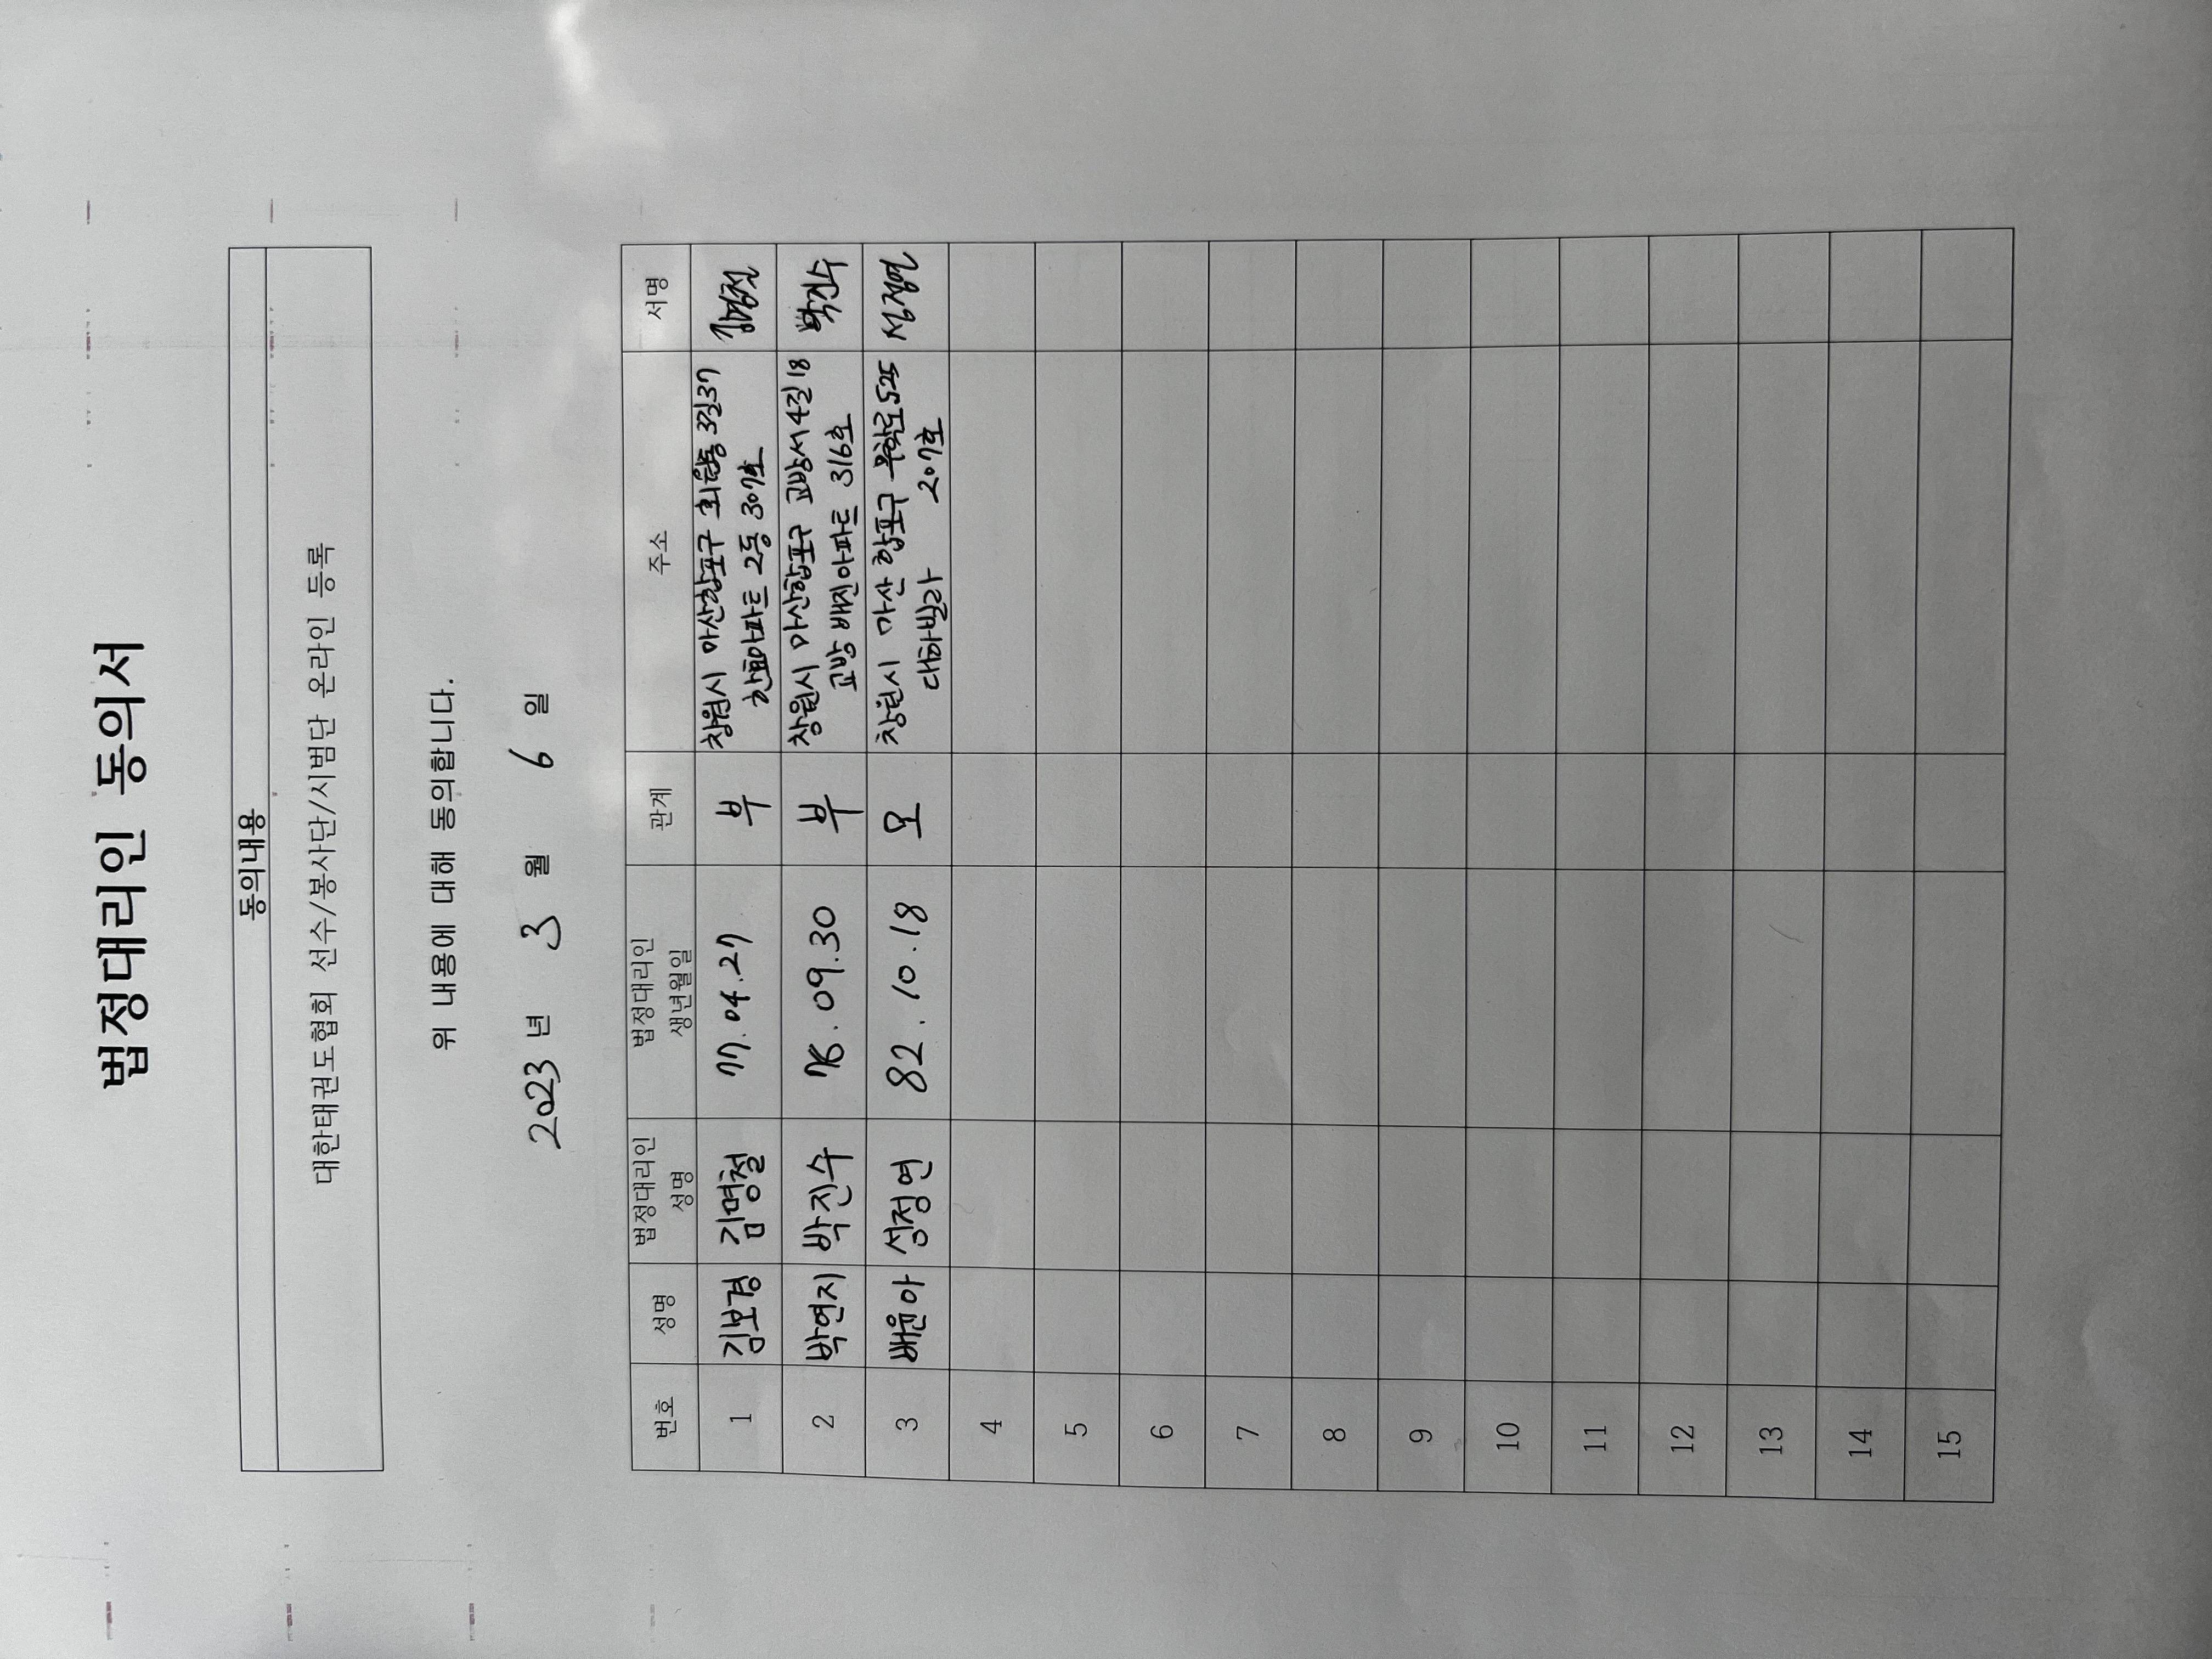 법정대리인 동의서
동의내용
대한태권도협회 선수/봉사단/시범단 온라인 등록
위 내용에 대해 동의합니다.
2023 년 3 월 6 일
번호 성명 법정대리인 성명 법정대리인 생년월일 관계 주소 서명
1 김보경 김명철 77.04.27 부 창원시 마산합포구 3길37 김명철
아파트 2동 307호
2 박연지 박진수 78.09.30 부 창원시 마산합포구 교방서4길 18 박진수
교방 배진아파트 316호
3 배윤아 성정연 82.10.18 모 창원시 마산합포구 무학로525 성정연
대하빌라 207호
4
5
6
7
8
9
10
11
12
13
14
15